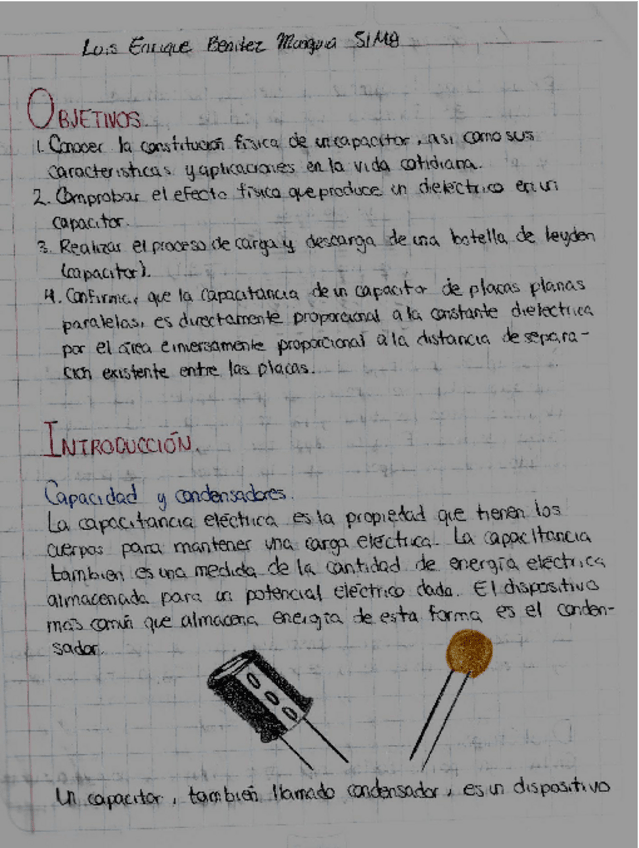 Luis Enrique Benitez 51M8
OBJETIVOS.
1. Conocer la constitución física de un capacitor, asi como sus
caracteristicas y aplicaciones en la vida cotidiana.
2. Comprobar el efecto físico que produce un dielectrico en un
capacitor.
3. Realizar el proceso de carga y descarga de una botella de leyden
(capacitor).
4. Confirmar que la capacitancia de un capacitor de placas planas
paralelas, es directamente proporcional a la constante dielectrica
por el área e inversamente proporcional a la distancia de separa-
ción existente entre las placas.
INTRODUCCIÓN.
Capacidad y condensadores.
La capacitancia eléctrica es la propiedad que tienen los
cuerpos para mantener una carga eléctrica. La capacitancia
tambien es una medida de la cantidad de energía eléctrica
almacenada para un potencial eléctrico dado. El dispositivo
más común que almacena energía de esta forma es el conden-
sador.
Un capacitor, también llamado condensador, es un dispositivo